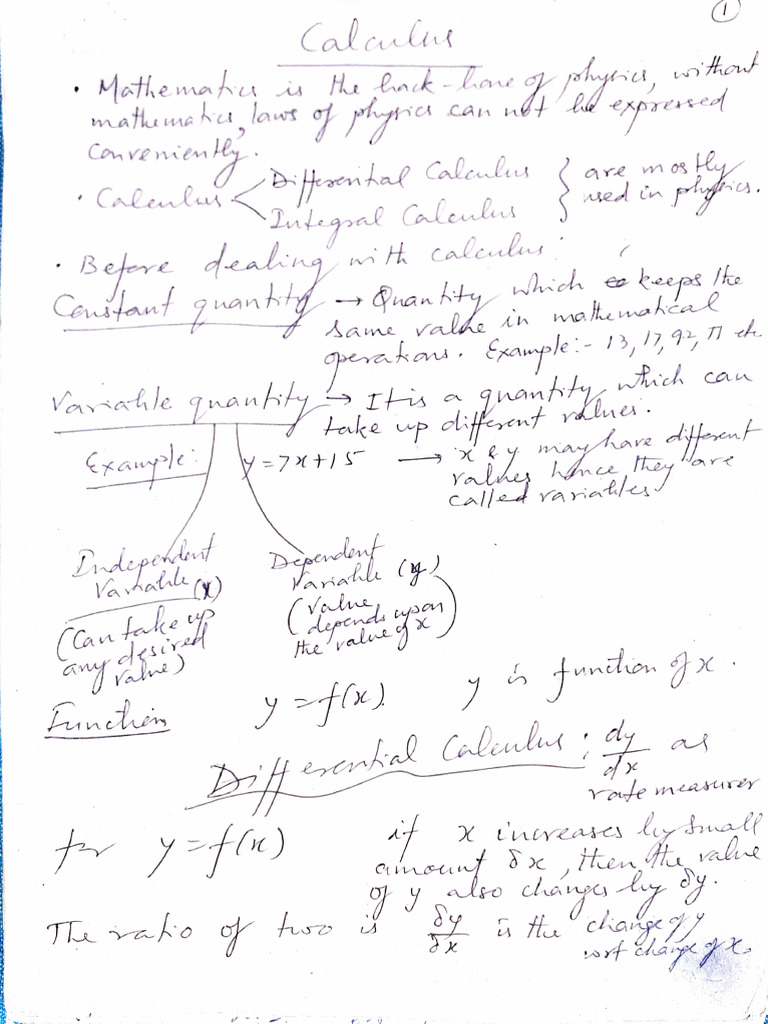 1
Calculus
• Mathematics is the back-bone of physics, without
mathematics, laws of physics can not be expressed
conveniently.
• Calculus < Differential Calculus } are mostly
Integral Calculus } used in physics.
• Before dealing with calculus:
Constant quantity → Quantity which keeps the
same value in mathematical
operations. Example:- 13, 17, 92, π etc
Variable quantity → It is a quantity which can
take up different values.
Example: y = 7x+15 → x & y may have different
values hence they are
called variables
Independent
Variable (x)
(Can take up
any desired
value)
Dependent
Variable (y)
(Value
depends upon
the value of x)
Function y = f(x) y is function of x.
Differential Calculus: dy/dx as
rate measurer
for y = f(x) if x increases by small
amount δx, then the value
of y also changes by δy.
The ratio of two is δy/δx is the change of y
wrt change of x.